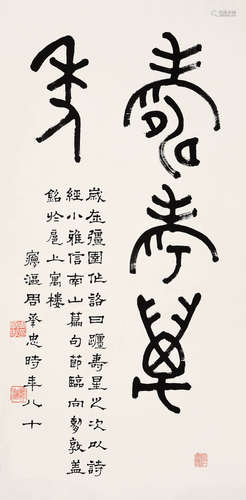 壽考萬
年
歲在彊圉作詻曰躔壽星之次以詩
經小雅信南山篇句節臨向敦蓋
銘於扈上寓樓
癭漚周承忠時年八十